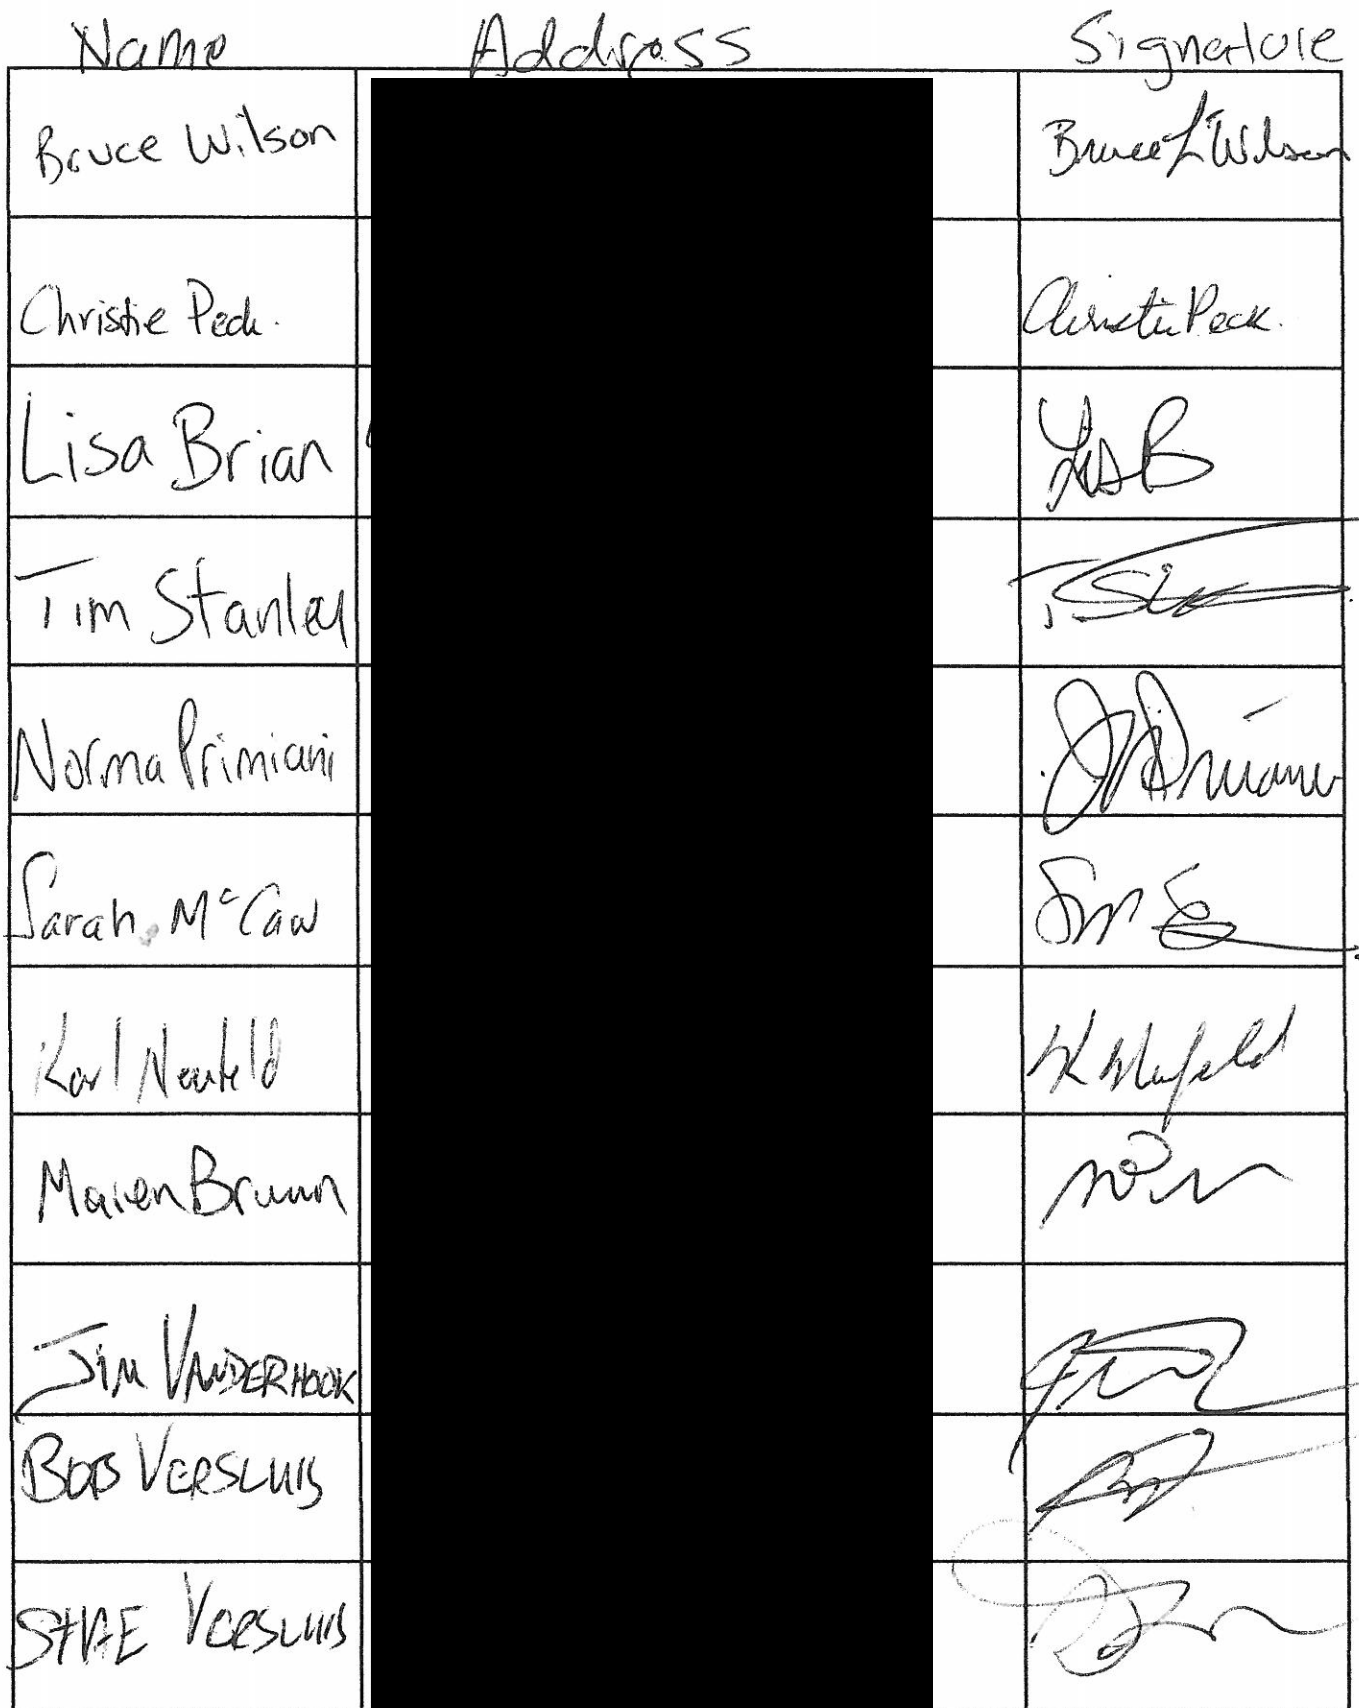 Name Address Signature
Bruce Wilson Bruce L Wilson
Christie Peck. Christie Peck.
Lisa Brian Lis B
Tim Stanley
Norma Primiani
Sarah McCaw
Karl Neufeld K Neufeld
Maren Bruun
Jim VANDERHOOK
BOB VERSLUIS
VERSLUIS